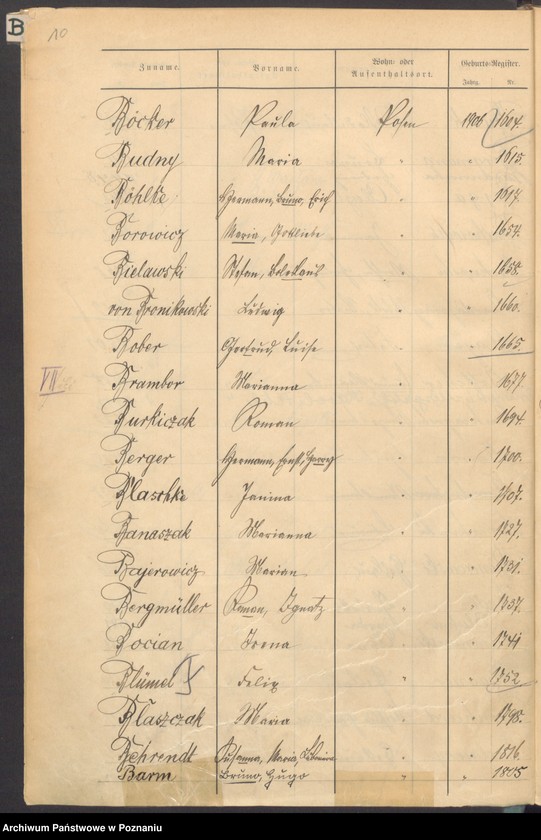 B
10
Zuname. Vorname. Wohn- oder Aufenthaltsort. Geburts-Register.
Jahrg. Nr.
Böcker Paula Posen 1906 1604.
Budny Maria " " 1615.
Böhlke Hermann, Bruno, Erich " " 1617.
Borowicz Maria, Gottliebe " " 1654.
Bielawski Stefan, Boleslaus " " 1658.
von Bronikowski Ludwig " " 1660.
Bober Gertrud, Luise " " 1665.
VII
Brambor Marianna " " 1677.
Burkiczak Roman " " 1694.
Berger Hermann, Ernst, Georg " " 1700.
Blaschke Janina " " 1707.
Banaszak Marianna " " 1727.
Bajerowicz Marian " " 1731.
Bergmüller Roman, Ignatz " " 1737.
Bocian Irena " " 1741
Blümel Felix " " 1752
Blaszczak Maria " " 1798.
Behrendt Susanna, Maria, " " 1816.
Barm Bruno, Hugo " " 1805
Archiwum Państwowe w Poznaniu